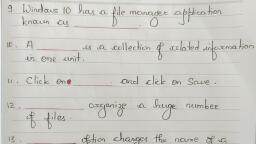 9. Windows 10 has a file manager application
known as ________.
10. A ________ is a collection of related information
in one unit.
11. Click on ________ and click on Save.
12. ________ organize a huge number
of files.
13. ________ option changes the name of a